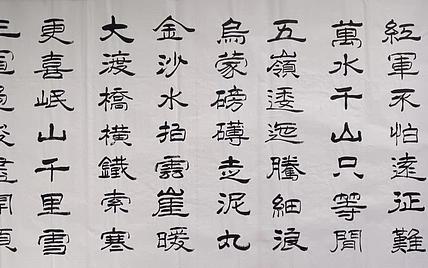 紅軍不怕遠征難
萬水千山只等閒
五嶺逶迤騰細浪
烏蒙磅礴走泥丸
金沙水拍雲崖暖
大渡橋橫鐵索寒
更喜岷山千里雪
三軍過後盡開顏